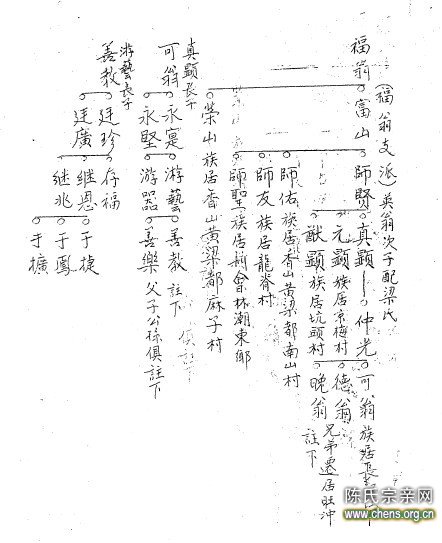 福翁
(福翁支派)英翁次子配梁氏
富山
師賢
真顕
仲光
可翁族居長
元顕族居京梅村
德翁
兄弟遷居旺沖
獻顕族居坑頭村
晚翁
註下
師佑族居香山黄梁都南山村
師友族居龍脊村
師聖族居新會林潮東鄉
榮山族居香山黄梁都麻子村
真顕長子
可翁
永寔
游藝
善教
註下
永堅
游器
善樂
父子公孫俱註下
游藝長子
善教
廷珍
存福
廷廣
继恩
于捷
继兆
于鳳
于擴
陈氏宗亲网
www.chens.org.cn